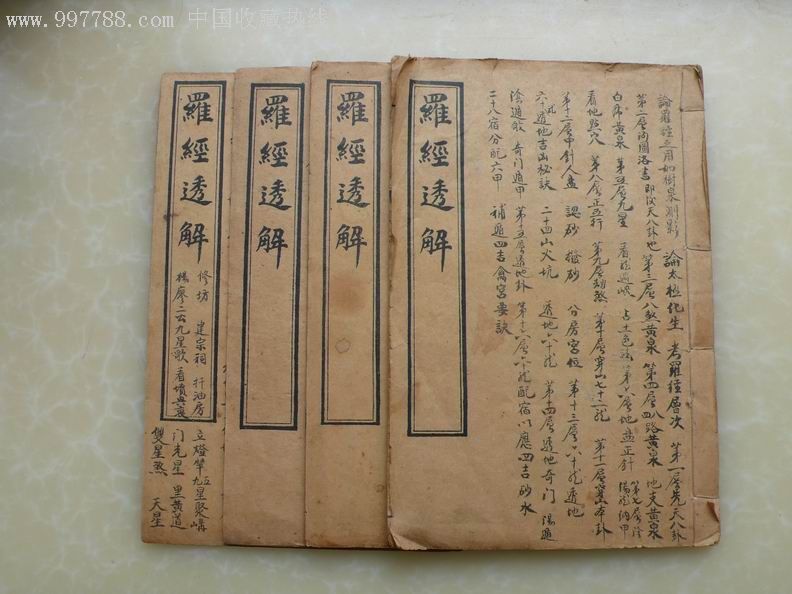 www.997788.com 中国收藏热线
羅經透解
羅經透解
羅經透解
羅經透解
論太極化生 考羅經層次 第一層先天八卦
第二層河圖洛書 即後天八卦地 第三層八煞黃泉 第四層八路黃泉 地支黃泉
白虎黃泉 第五層九星
看地點穴 第八層正五行 第九層劫煞 第十層穿山七十二龍 第十一層
第十二層中針人盤 認砂 撥砂 分房宮位 第十三層六十龍透地
六十龍透地吉凶秘訣 二十四山火坑 透地六十龍 第十四層透地奇門 陽遁
陰遁 奇门遁甲 第十五層透地卦 第十六層六十龍配宿以應四吉砂水
二十八宿分配六甲 補遁四吉禽宮要訣
修坊 建宗祠 扦油房
楊廖二公九星歌
立燈篳
门光星 黑黃道
雙星煞 天星